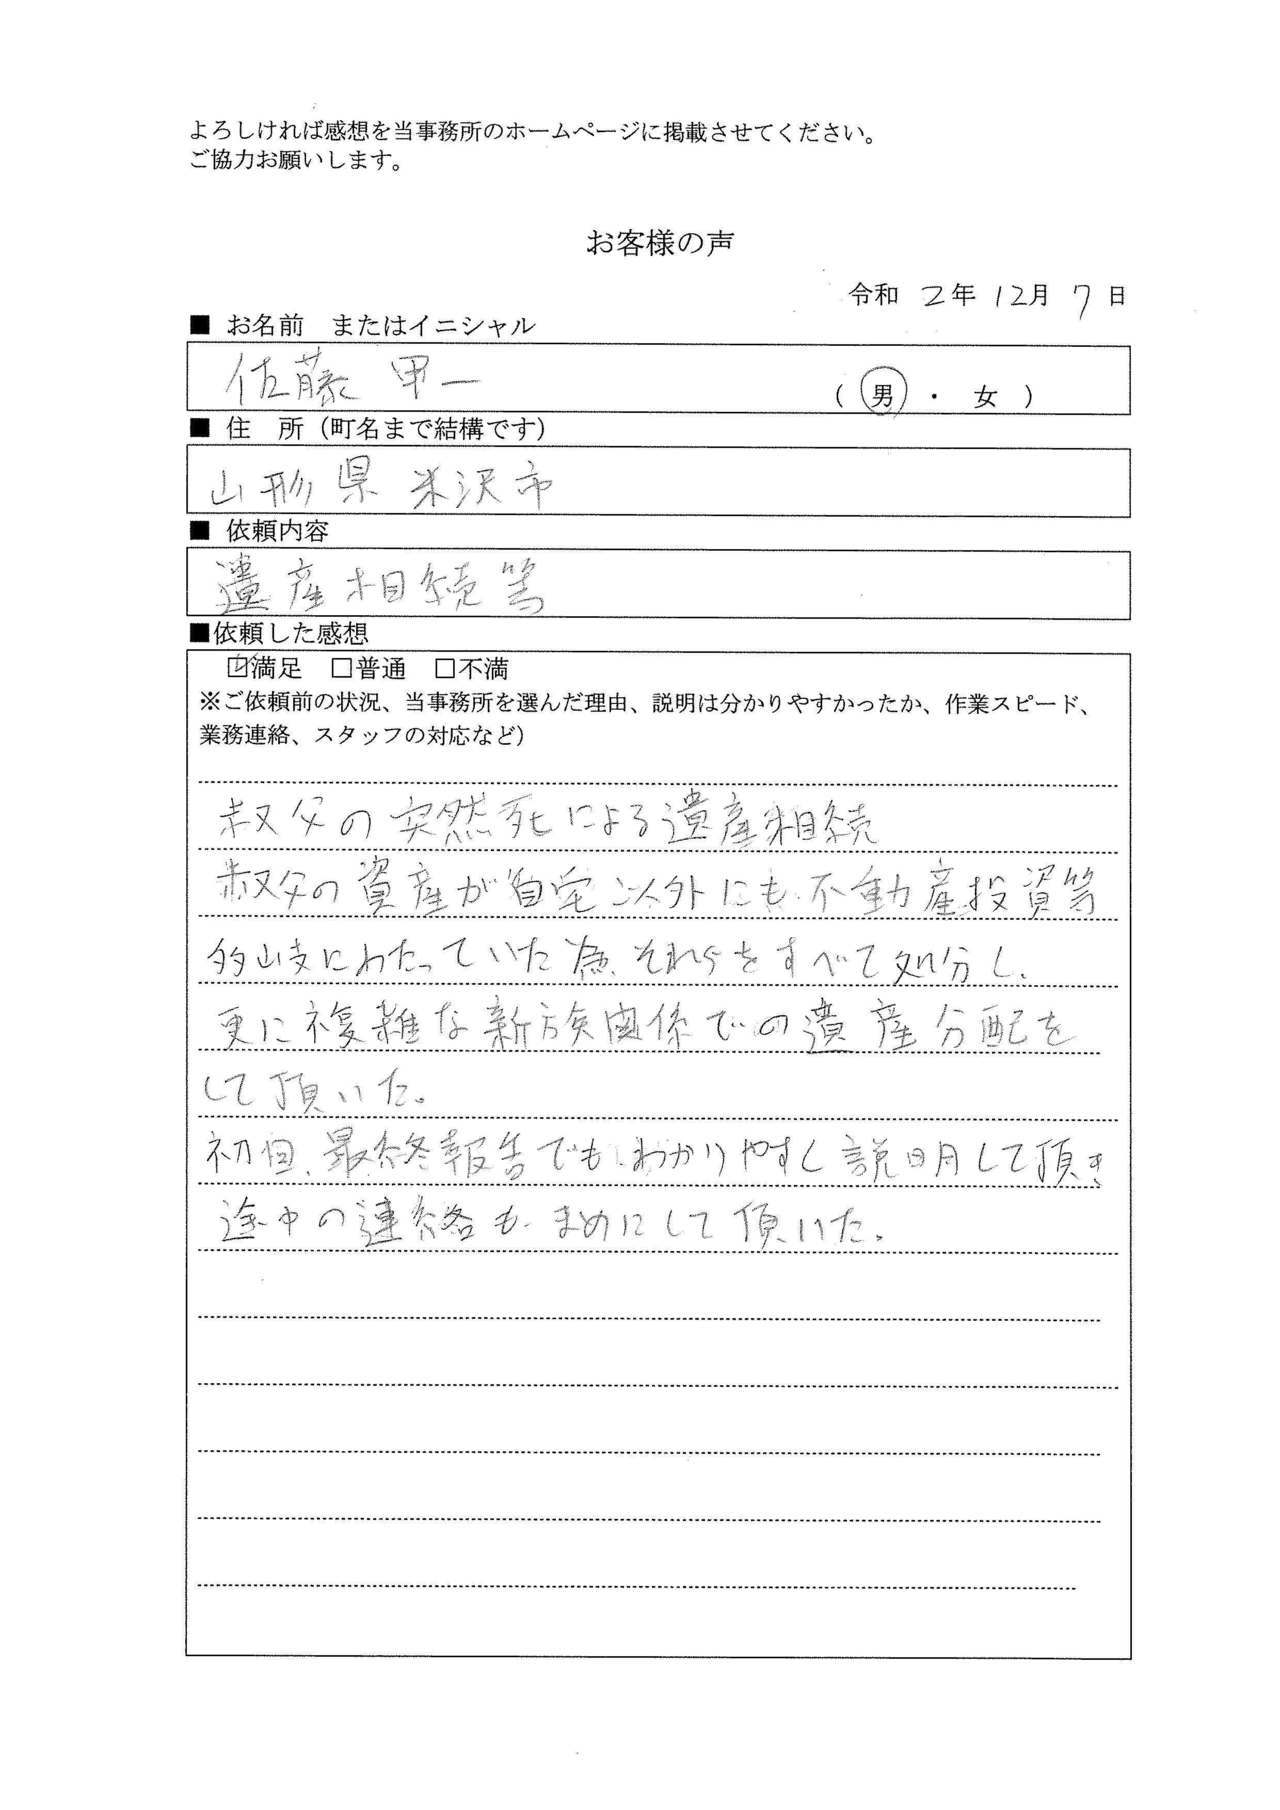 よろしければ感想を当事務所のホームページに掲載させてください。
ご協力お願いします。
お客様の声
令和 2年 12月 7日
■ お名前 またはイニシャル
佐藤 甲一 ( 男 ・ 女 )
■ 住 所（町名まで結構です）
山形県 米沢市
■ 依頼内容
遺産相続等
■依頼した感想
☑満足 □普通 □不満
※ご依頼前の状況、当事務所を選んだ理由、説明は分かりやすかったか、作業スピード、
業務連絡、スタッフの対応など）
叔父の突然死による遺産相続
叔父の資産が自宅以外にも不動産投資等
多岐にわたっていた為、それらをすべて処分し、
更に複雑な新族関係での遺産分配を
して頂いた。
初回、最終報告でもわかりやすく説明して頂き
途中の連絡も、まめにして頂いた。